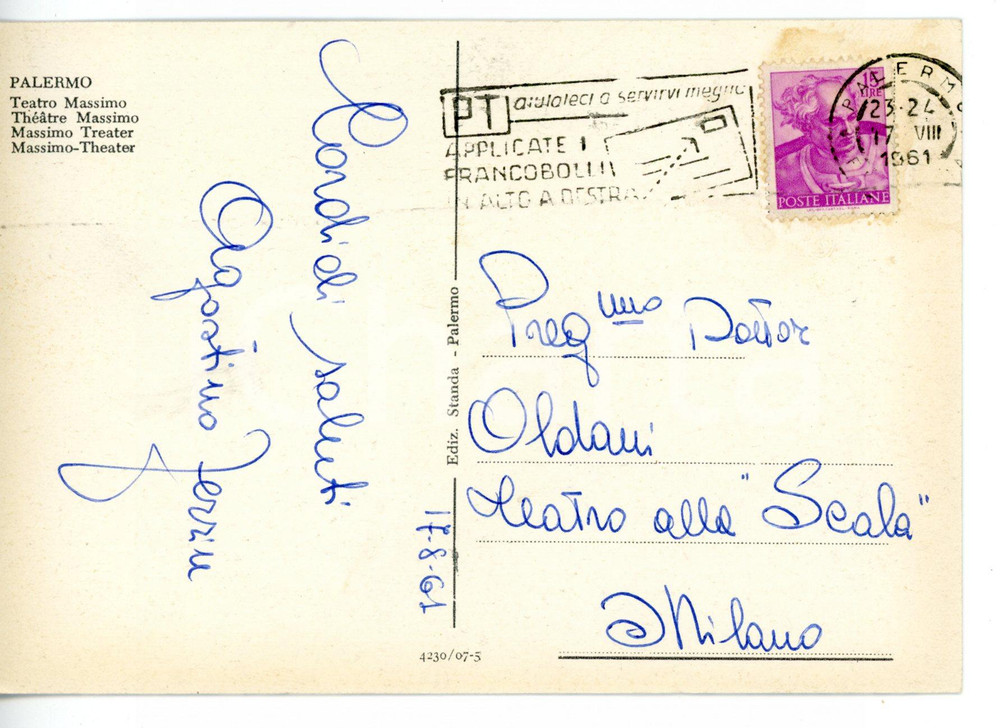 PALERMO
Teatro Massimo
Théâtre Massimo
Massimo Treater
Massimo-Theater
Cordiali saluti
Agostino
17-8-61
Ediz. Standa - Palermo
4230/07-5
PT aiutateci a servirvi meglio
APPLICATE I
FRANCOBOLLI
IN ALTO A DESTRA
15
LIRE
POSTE ITALIANE
PALERMO
23-24
17 VIII
1961
Preg.mo Dottor
Oldani
Teatro alla "Scala"
Milano